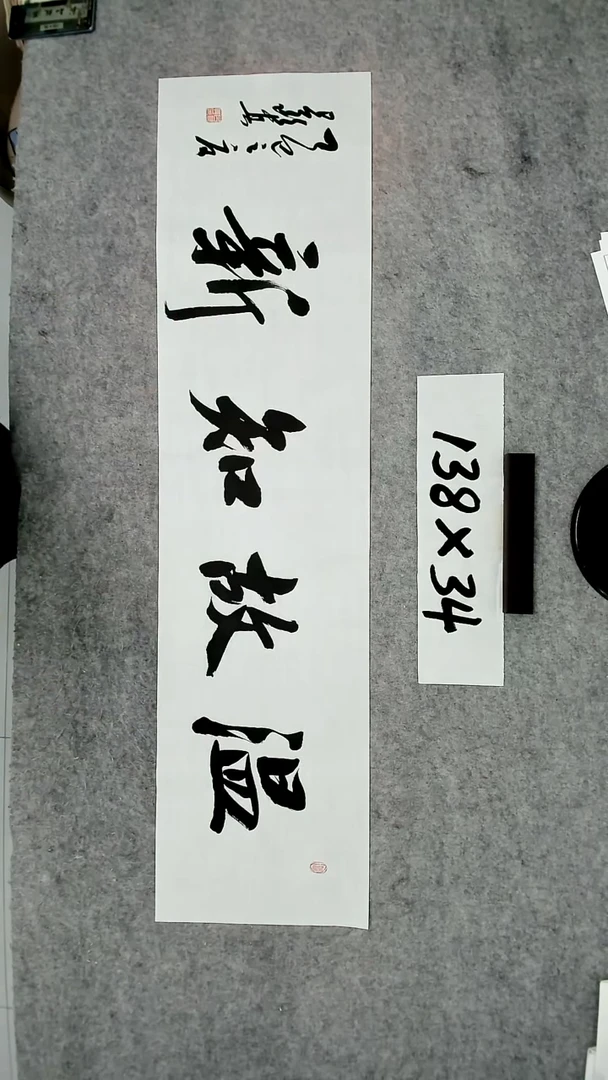 新知故温
138×34